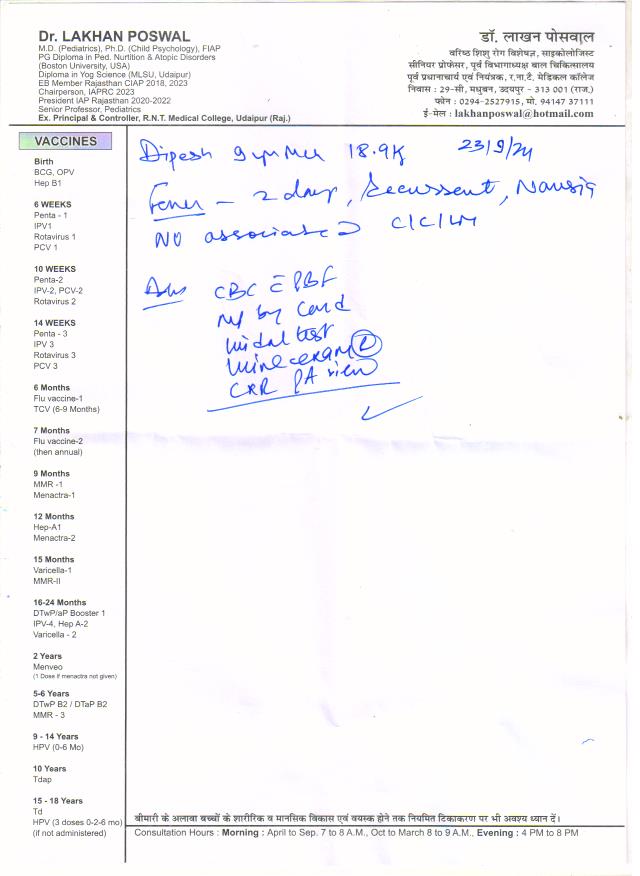 Dr. LAKHAN POSWAL
M.D. (Pediatrics), Ph.D. (Child Psychology), FIAP
PG Diploma in Ped. Nurtition & Atopic Disorders
(Boston University, USA)
Diploma in Yog Science (MLSU, Udaipur)
EB Member Rajasthan CIAP 2018, 2023
Chairperson, IAPRC 2023
President IAP Rajasthan 2020-2022
Senior Professor, Pediatrics
Ex. Principal & Controller, R.N.T. Medical College, Udaipur (Raj.)
डॉ. लाखन पोसवाल
वरिष्ठ शिशु रोग विशेषज्ञ, साइकोलोजिस्ट
सीनियर प्रोफेसर, पूर्व विभागाध्यक्ष बाल चिकित्सालय
पूर्व प्रधानाचार्य एवं नियंत्रक, र.ना.टै. मेडिकल कॉलेज
निवास : 29-सी, मधुबन, उदयपुर - 313 001 (राज.)
फोन : 0294-2527915, मो. 94147 37111
ई-मेल : lakhanposwal@hotmail.com
VACCINES
Birth
BCG, OPV
Hep B1
6 WEEKS
Penta - 1
IPV1
Rotavirus 1
PCV 1
10 WEEKS
Penta-2
IPV-2, PCV-2
Rotavirus 2
14 WEEKS
Penta - 3
IPV 3
Rotavirus 3
PCV 3
6 Months
Flu vaccine-1
TCV (6-9 Months)
7 Months
Flu vaccine-2
(then annual)
9 Months
MMR -1
Menactra-1
12 Months
Hep-A1
Menactra-2
15 Months
Varicella-1
MMR-II
16-24 Months
DTwP/aP Booster 1
IPV-4, Hep A-2
Varicella - 2
2 Years
Menveo
(1 Dose if menactra not given)
5-6 Years
DTwP B2 / DTaP B2
MMR - 3
9 - 14 Years
HPV (0-6 Mo)
10 Years
Tdap
15 - 18 Years
Td
HPV (3 doses 0-2-6 mo)
(if not administered)
Dipesh 9 18.9K 23/9/24
Fever - 2 day, Recurrent, Nausia
NO associated
Adv CBC PBF
mp by Card
widal test
urine exam R
CXR PA view
बीमारी के अलावा बच्चों के शारीरिक व मानसिक विकास एवं वयस्क होने तक नियमित टिकाकरण पर भी अवश्य ध्यान दें।
Consultation Hours : Morning : April to Sep. 7 to 8 A.M., Oct to March 8 to 9 A.M., Evening : 4 PM to 8 PM